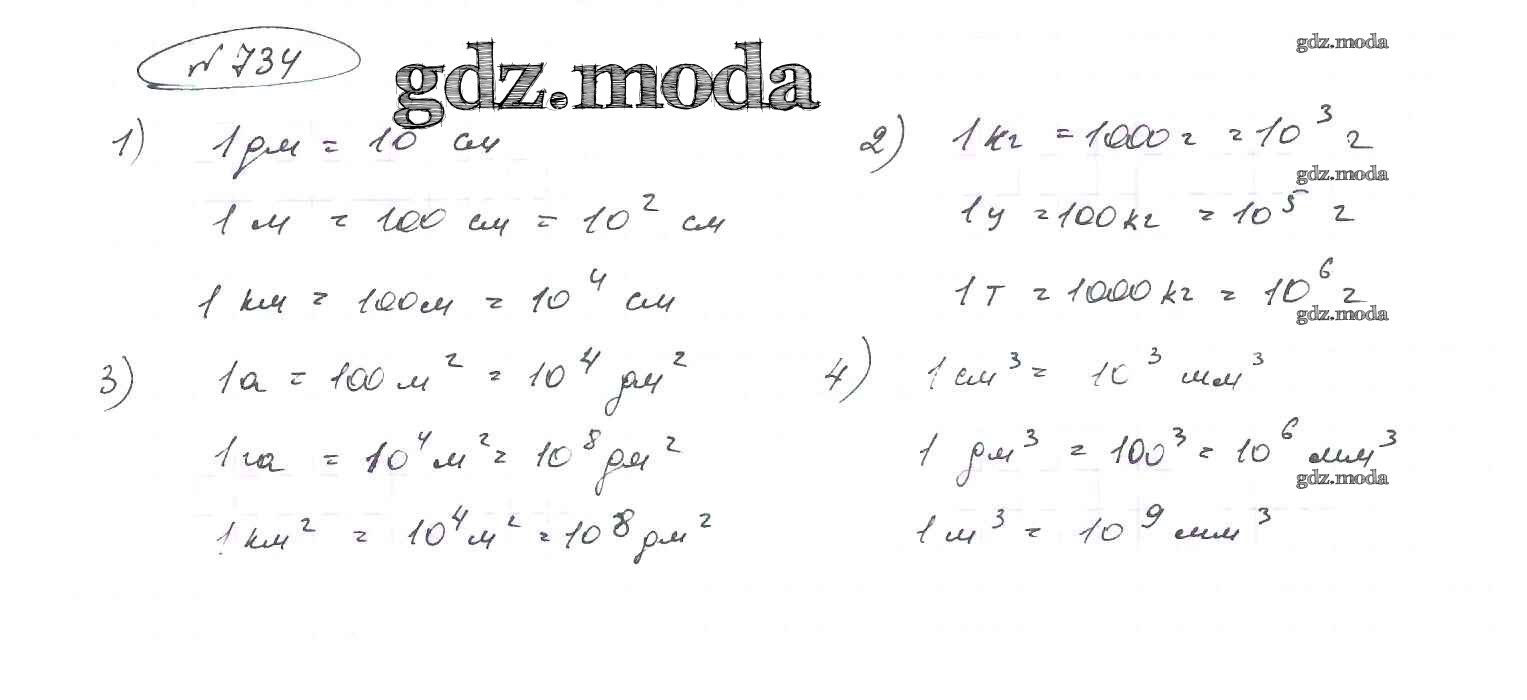 № 734
gdz.moda
gdz.moda
1) 1 дм = 10 см
1 м = 100 см = 10² см
1 км = 100м = 10⁴ см
2) 1 кг = 1000 г = 10³ г
gdz.moda
1 ц = 100 кг = 10⁵ г
1 т = 1000 кг = 10⁶ г
gdz.moda
3) 1 а = 100 м² = 10⁴ дм²
1 га = 10⁴ м² = 10⁸ дм²
1 км² = 10⁴ м² = 10⁸ дм²
4) 1 см³ = 10³ мм³
1 дм³ = 100³ = 10⁶ мм³
gdz.moda
1 м³ = 10⁹ мм³